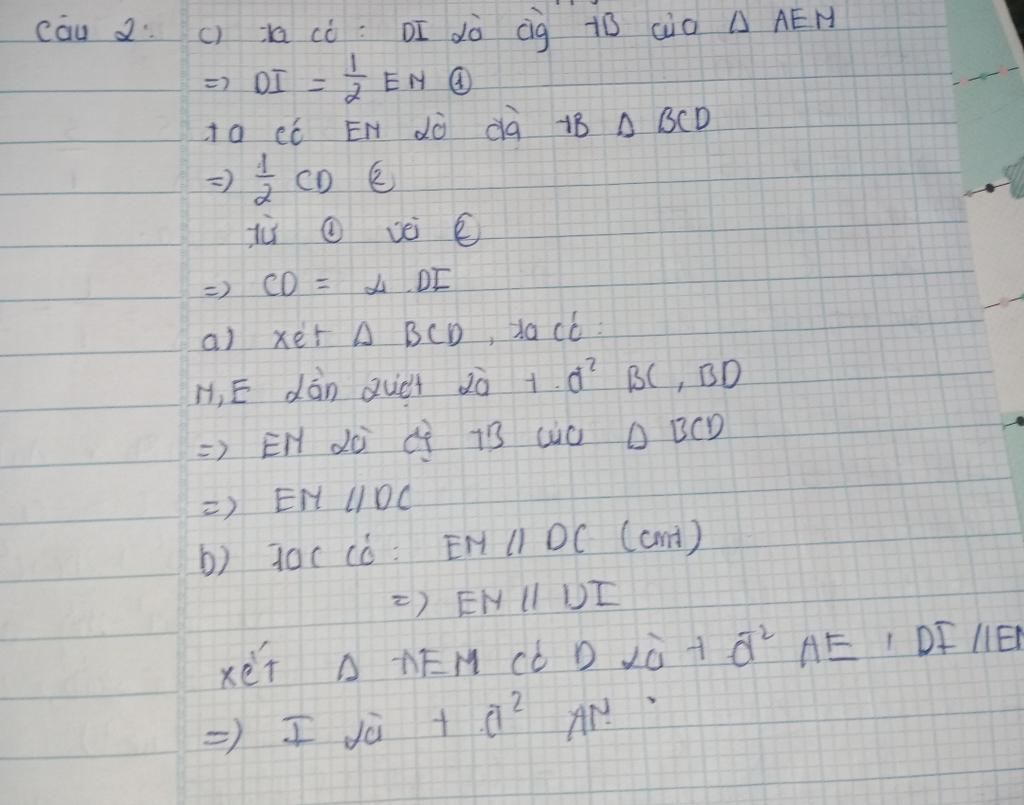 Câu 2: c) ta có: DI là đg TB của Δ AEM
=> DI = 1/2 EM ①
ta có EM là đg TB Δ BCD
=> 1/2 CD ②
từ ① và ②
=> CD = 4 DI
a) xét Δ BCD, ta có:
M, E lần lượt là t.đ² BC, BD
=> EM là đg TB của Δ BCD
=> EM // DC
b) Tac có: EM // DC (cmt)
=> EM // DI
xét Δ AEM có D là t đ² AE, DI // EM
=> I là t.đ² AM.